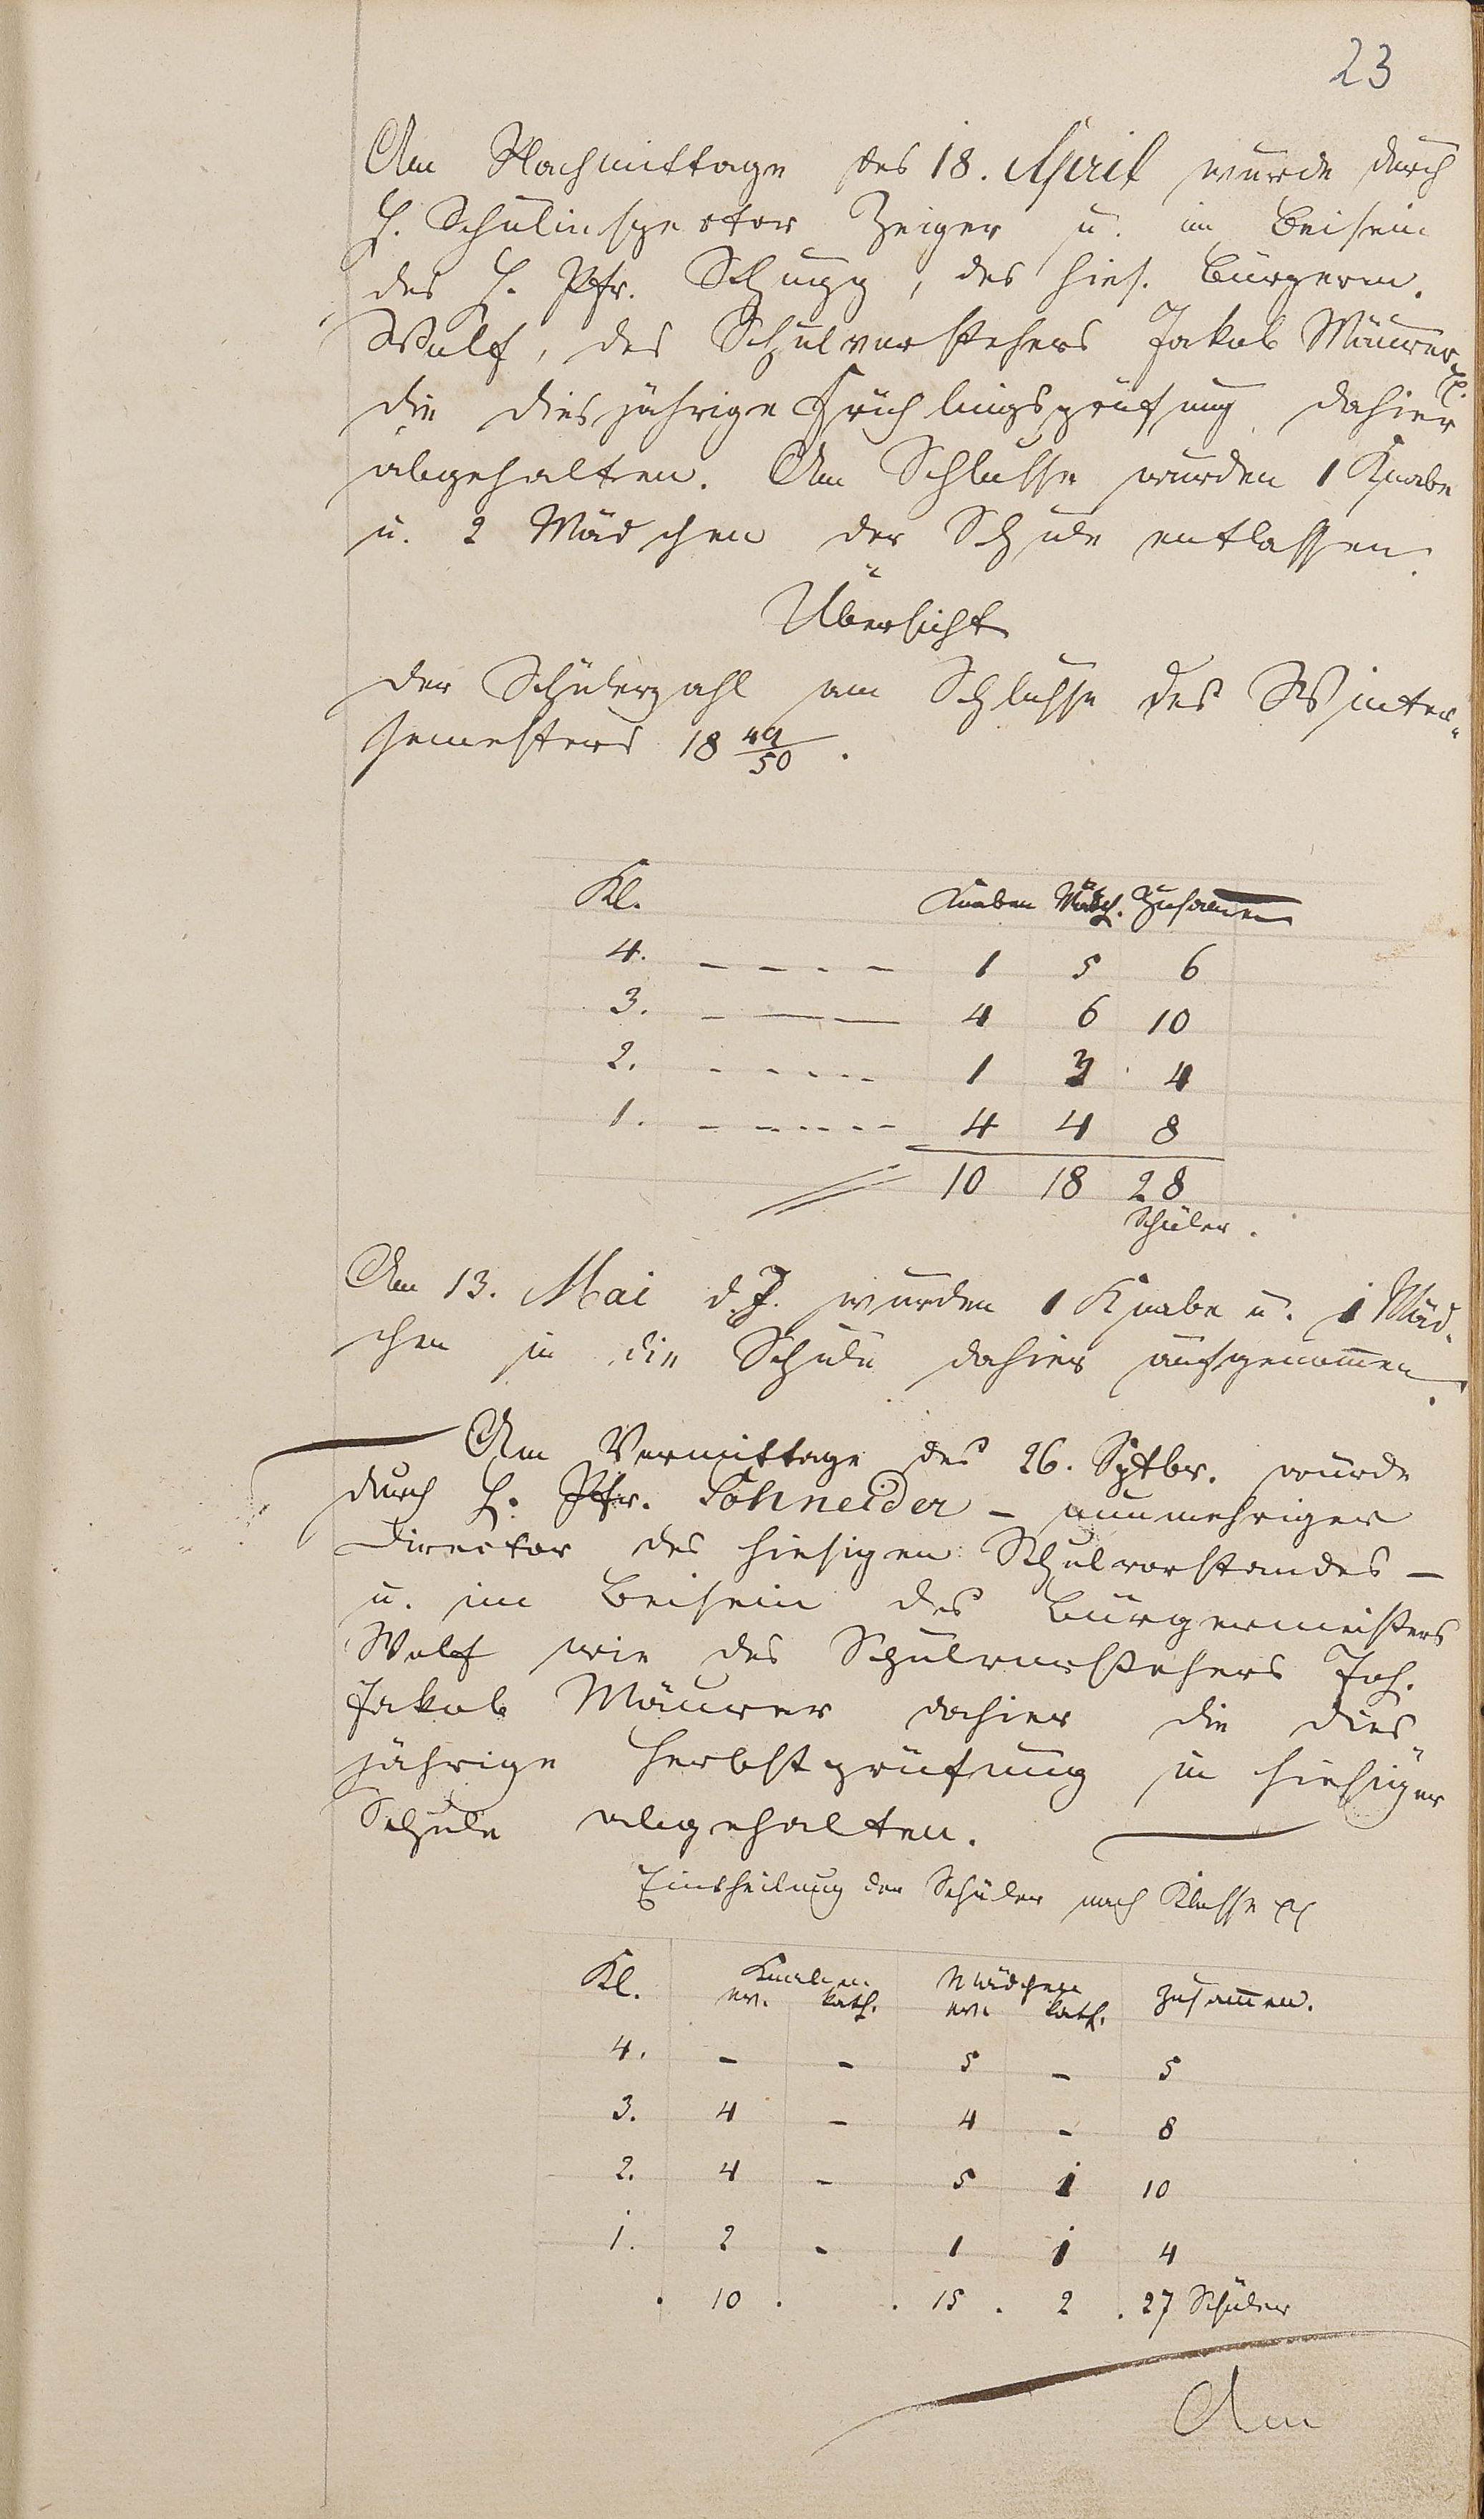 23
Am Nachmittage des 18. April wurde durch
H. Schulinspector Zeiger u. im Beisein
des H. Pfr. Schupp, des hies. Bürgerm.
Wolf, des Schulvorstehers Jakob Mäurer pp.
die diesjährige Frühlingsprüfung dahier
abgehalten. Am Schlusse wurden 1 Knabe
u. 2 Mädchen der Schule entlassen.
Übersicht
der Schülerzahl am Schlusse des Winter-
semesters 18 49/50.
Kl. Knaben Mädch. Zusammen
4. - - - - 1 5 6
3. - — — 4 6 10
2. - - - - - 1 3 4
1. - - - - - - 4 4 8
10 18 28
Schüler.
Am 13. Mai d. J. wurden 1 Knabe u. 1 Mäd-
chen in die Schule dahier aufgenommen.
Am Vormittage des 26. Sptbr. wurde
durch H. Pfr. Schneider - nunmehriger
Director des hiesigen Schulvorstandes -
u. im Beisein des Bürgermeisters
Wolf wie des Schulvorstehers Joh.
Jakob Mäurer dahier die dies-
jährige Herbstprüfung in hiesiger
Schule abgehalten.
Eintheilung der Schüler nach Klasse pp
Kl. Knaben Mädchen zusammen.
ev. kath. ev. kath.
4. - - 5 - 5
3. 4 - 4 - 8
2. 4 - 5 1 10
1. 2 - 1 1 4
. 10 . . 15 . 2 . 27 Schüler
Am